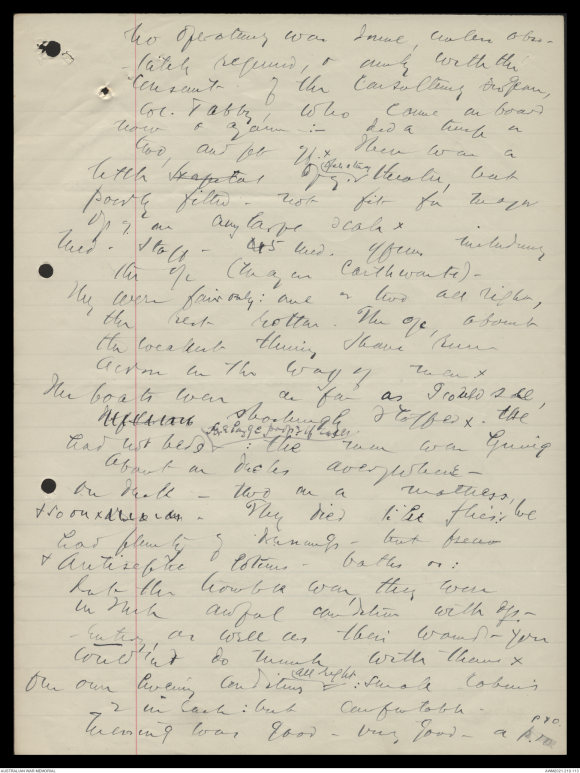 No operating was done, unless abso-
-lutely required, & only with the
consent of the Consulting Surgeon,
Col. Tubby, who came on board
now & again :- did a trick or
two, and got off x There was a
little operating theatre, but
poorly fitted - not fit for major
op's on any large scale x
Med - Staff - 5 med. officers including
the O/C (Major Earthwaite) -
They were fair only: one or two all right,
the rest rotten. The O/C, about
the weakest thing I have seen
across in the way of man x
The boats were as far as I could see,
shockingly staffed x. The
had not beds for large propn of cases : the men were lying
about on decks everywhere -
on deck - two on a mattress,
& so on x - They died like flies: we
had plenty of dressings - but few
& Antiseptic lotions - baths etc:
but the trouble was, they were
in such awful condition with dys-
-entery, as well as their wounds - you
could not do much with them x
Our own living conditions all right : small cabins
2 in each: but comfortable -
Messing was good - very good - a
P.T.O.
AUSTRALIAN WAR MEMORIAL